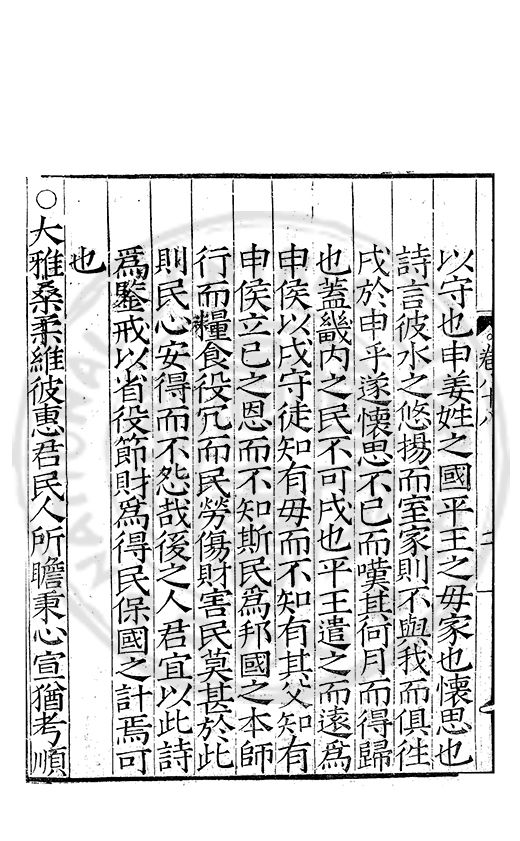 以守也申姜姓之國平王之毋家也懷思也
詩言彼水之悠揚而室家則不與我而俱徃
戍於申乎遂懷思不已而嘆其何月而得歸
也蓋畿内之民不可戍也平王遣之而遠爲
申侯以戍守徒知有毋而不知有其父知有
申侯立已之恩而不知斯民爲邦國之本師
行而糧食役冗而民勞傷財害民莫甚於此
則民心安得而不怨哉後之人君宜以此詩
爲鑒戒以省役節財爲得民保國之計焉可
也
○大雅桑柔維彼惠君民人所瞻秉心宣猶考順
卷八十八
二